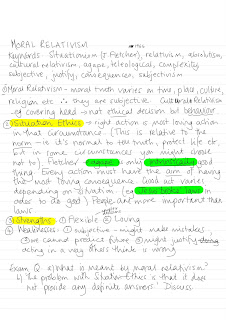 MORAL RELATIVISM
Keywords: Situationism (J Fletcher), relativism, absolutism,
cultural relativism, agape, teleological, complexity,
subjective, justify, consequences, subjectivism
① Moral Relativism - moral truth varies on time, place, culture,
religion etc ∴ they are subjective. Cultural Relativism
- eg covering head - not ethical decision but behavior.
② Situation Ethics → right action is most loving action
in that circumstance. (This is relative to the
norm - ie it's normal to tell truth, protect life etc,
but in some circumstances you might choose
not to). Fletcher - agape is only intrinsically good
thing. Every action must have the aim of having
the most loving consequence. Good act varies
depending on situation (eg Jesus broke law in
order to do good) People are more important than
laws.
③ Strengths ① Flexible ② Loving
④ Weaknesses - ① subjective - might make mistakes
② we cannot predict future ③ might justify
acting in a way others think is wrong
Exam Q a) What is meant by moral relativism?
b) The problem with Situation Ethics is that it does
not provide any definite answers. Discuss.